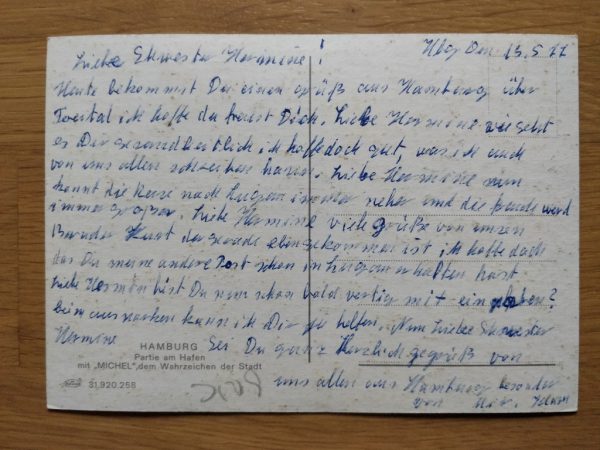 Liebe Schwester Hermine! Hbg Den 13.5.77
Heute bekommst Du einen grüß aus Hamburg über
ich hoffe du freust Dich. Liebe Hermine wie geht
es Dir gesundheitlich ich hoffe doch gut, was ich auch
von uns allen schreiben kann. Liebe Hermine nun
kommt die Reise nach immer neher und die freude werd
immer großer. Liebe Hermine viele grüße von unzen
Bruder Kurt der gerade eben gekommen ist ich hoffe doch
das Du meine andere Post schon in erhalten hast
Liebe Hermine bist Du nun schon bald vertig mit
beim kann ich Dir ja helfen. Nun Liebe Schwester
Hermine Sei Du ganz Herzlich gegrüß von
uns allen aus Hamburg besonder
von
HAMBURG
Partie am Hafen
mit „MICHEL", dem Wahrzeichen der Stadt
31.920.258